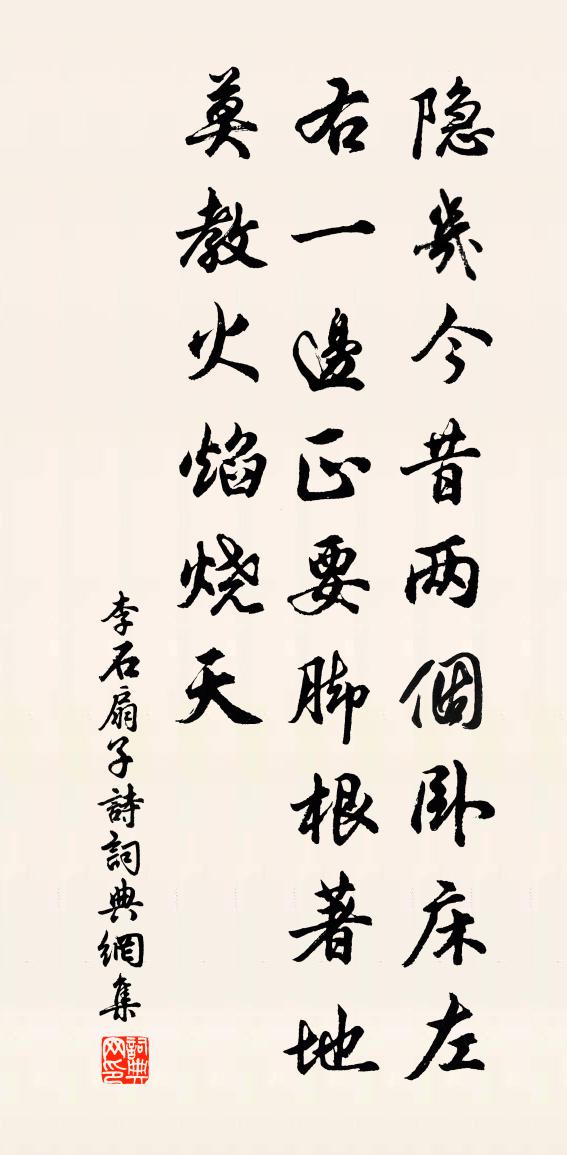 隐幾今昔两個卧床左
右一邊正要脚根著地
莫教火焰烧天
李石扇子詩詞典網集
詞典网印